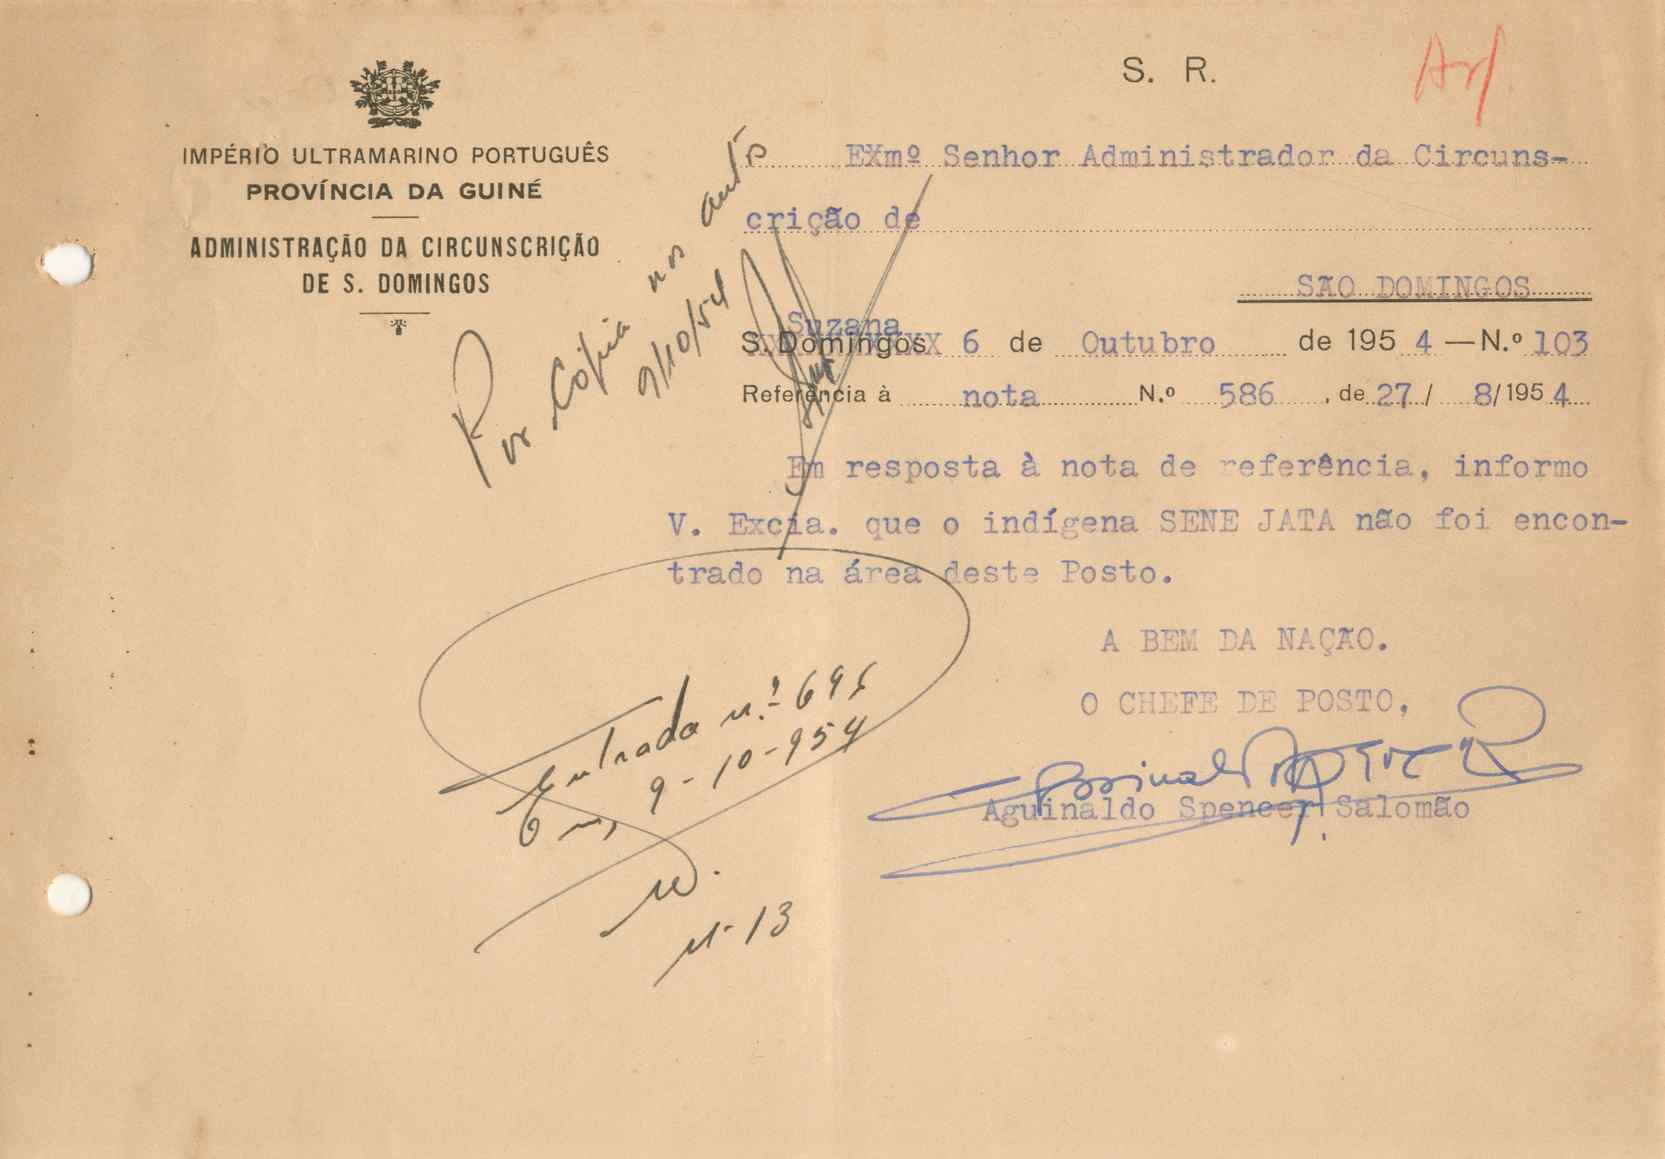 S. R.
IMPÉRIO ULTRAMARINO PORTUGUÊS
PROVÍNCIA DA GUINÉ
ADMINISTRAÇÃO DA CIRCUNSCRIÇÃO
DE S. DOMINGOS
EXmº Senhor Administrador da Circuns-
crição de
SÃO DOMINGOS
Suzana
S. Domingos 6 de Outubro de 1954 — N.º 103
Referência à nota N.º 586, de 27/ 8/1954
Por Cópia nos autos
9/10/54
Em resposta à nota de referência, informo
V. Excia. que o indígena SENE JATA não foi encon-
trado na área deste Posto.
A BEM DA NAÇÃO.
O CHEFE DE POSTO,
Aguinaldo Spencer Salomão
Entrada n.º 695
Em, 9-10-954
Nº 13